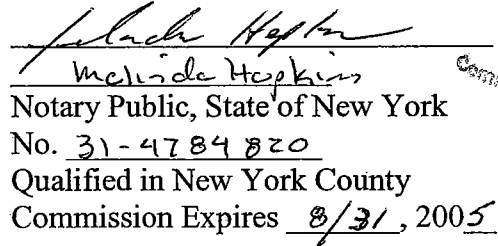 Melinda Hopkins
Notary Public, State of New York
No. 31-4784820
Qualified in New York County
Commission Expires 8/31, 2005